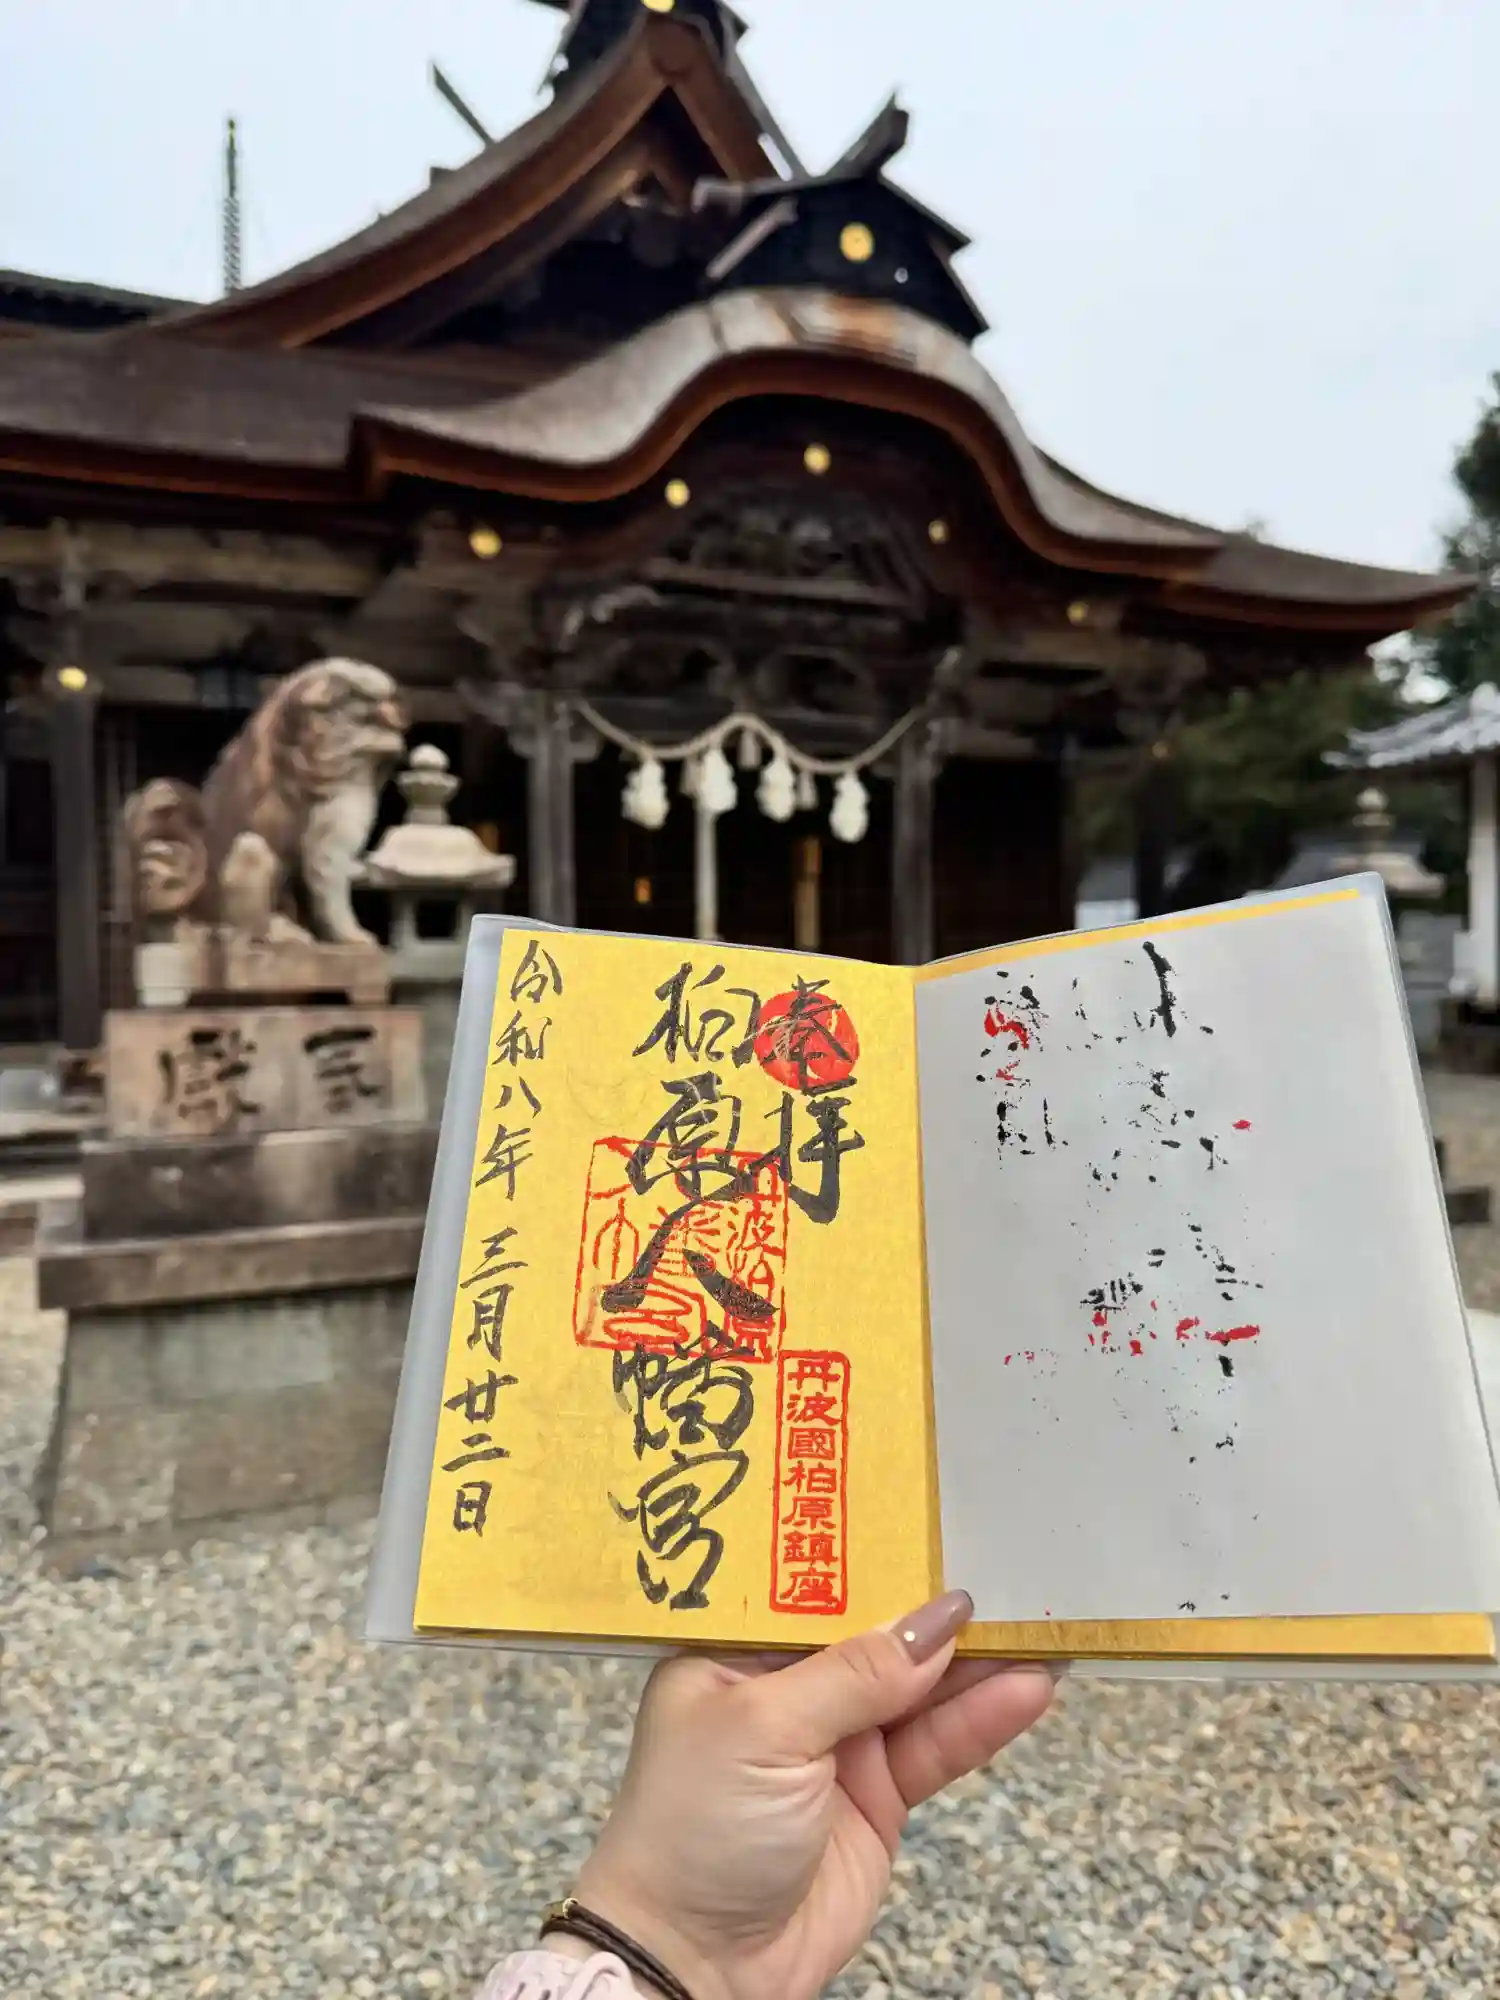 奉拝
柏原八幡宮
令和八年 三月廿二日
丹波國柏原鎮座
丹波柏原
献